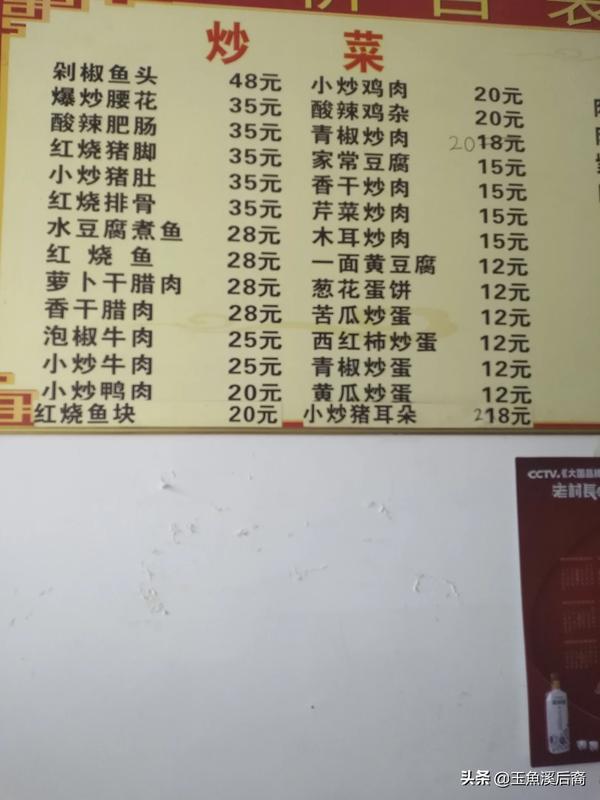 炒 菜
剁椒鱼头 48元
爆炒腰花 35元
酸辣肥肠 35元
红烧猪脚 35元
小炒猪肚 35元
红烧排骨 35元
水豆腐煮鱼 28元
红烧鱼 28元
萝卜干腊肉 28元
香干腊肉 28元
泡椒牛肉 25元
小炒牛肉 25元
小炒鸭肉 20元
红烧鱼块 20元
小炒鸡肉 20元
酸辣鸡杂 20元
青椒炒肉 20 18元
家常豆腐 15元
香干炒肉 15元
芹菜炒肉 15元
木耳炒肉 15元
一面黄豆腐 12元
葱花蛋饼 12元
苦瓜炒蛋 12元
西红柿炒蛋 12元
青椒炒蛋 12元
黄瓜炒蛋 12元
小炒猪耳朵 18元
CCTV.《大国品牌
老村長
头条 @玉魚溪后裔